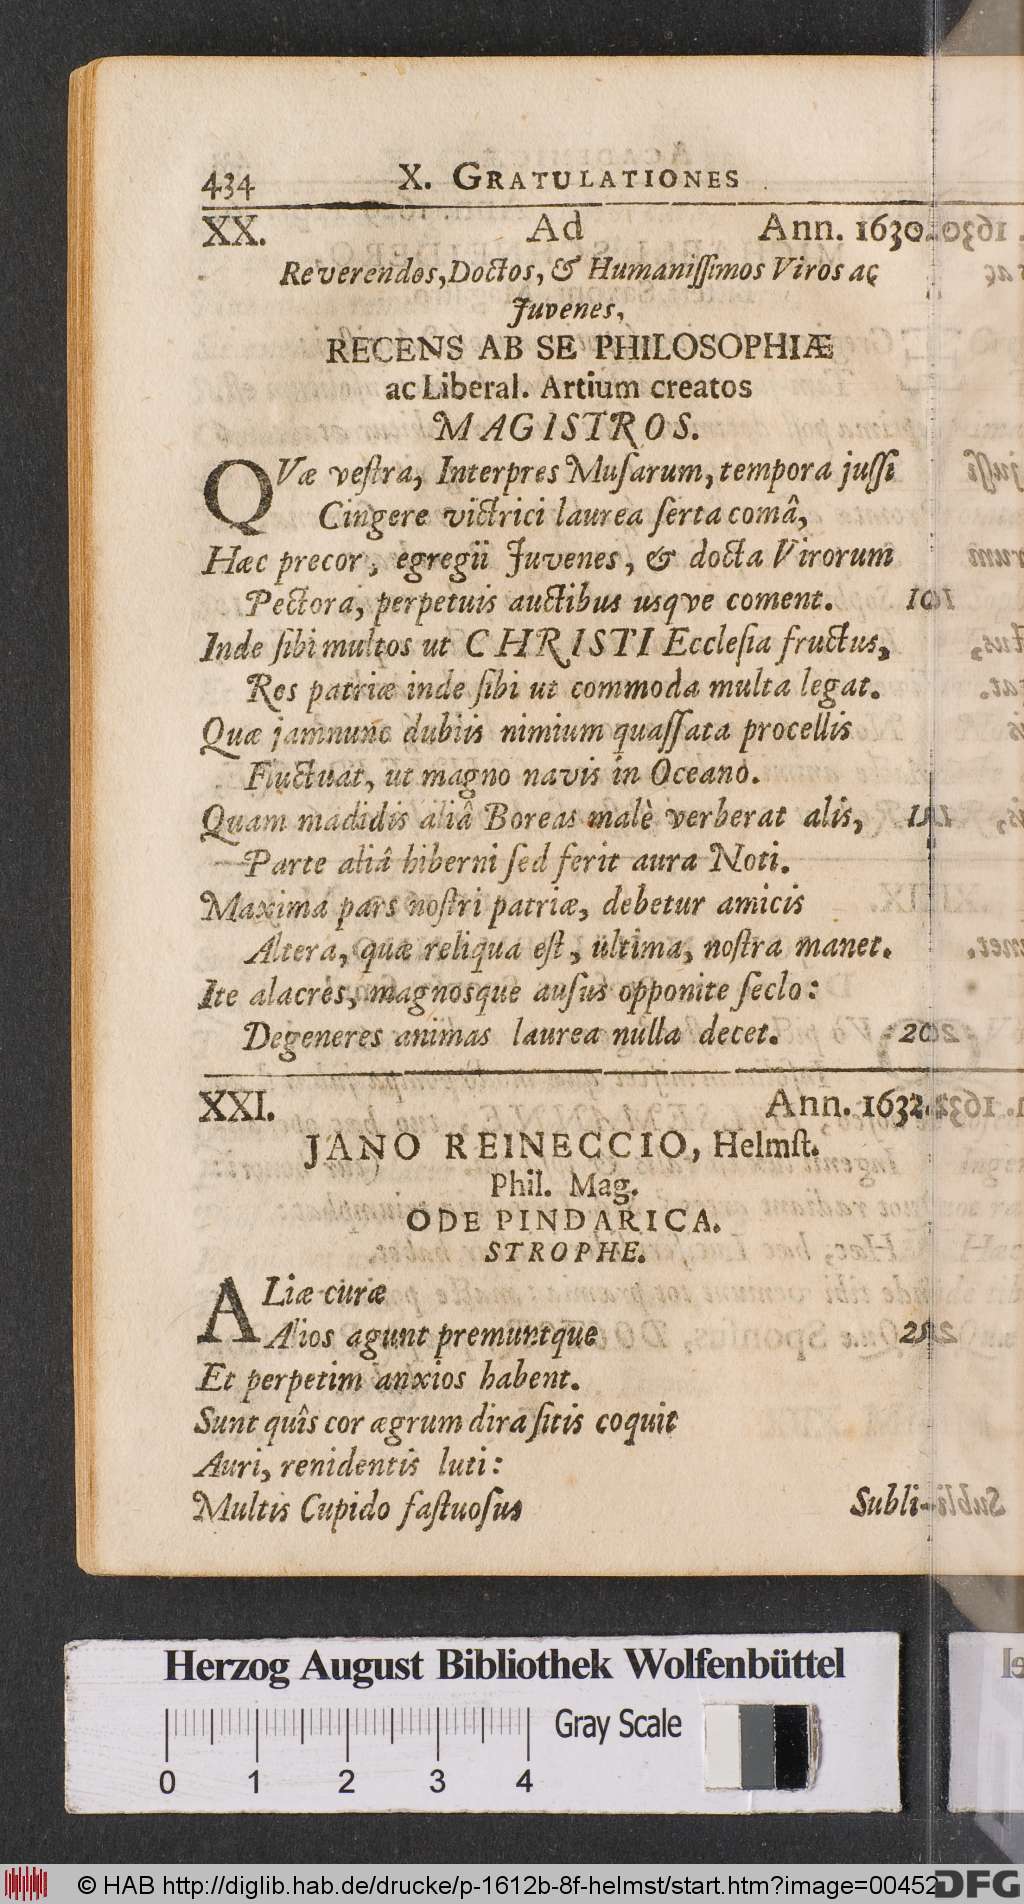 434 X. GRATULATIONES
XX. Ad Ann. 1630.
Reverendos, Doctos, & Humaniſſimos Viros ac
Juvenes,
RECENS AB SE PHILOSOPHIÆ
ac Liberal. Artium creatos
MAGISTROS.
QVæ veſtra, Interpres Muſarum, tempora juſſi
Cingere victrici laurea ſerta comâ,
Hæc precor, egregii Juvenes, & docta Virorum
Pectora, perpetuis auctibus usqve coment. 10
Inde ſibi multos ut CHRISTI Eccleſia fructus,
Res patriæ inde ſibi ut commoda multa legat.
Quæ jamnunc dubiis nimium quaſſata procellis
Fluctuat, ut magno navis in Oceano.
Quam madidis aliâ Boreas malè verberat alis, 15
Parte aliâ hiberni ſed ferit aura Noti.
Maxima pars noſtri patriæ, debetur amicis
Altera, quæ reliqua eſt, ultima, noſtra manet.
Ite alacres, magnosque auſus opponite ſeclo:
Degeneres animas laurea nulla decet. 20
XXI. Ann. 1632.
JANO REINECCIO, Helmſt.
Phil. Mag.
ODE PINDARICA.
STROPHE.
ALiæ curæ
Alios agunt premuntque 25
Et perpetim anxios habent.
Sunt quîs cor ægrum dira ſitis coquit
Auri, renidentis luti:
Multis Cupido faſtuoſus
Subli-
Herzog August Bibliothek Wolfenbüttel
Gray Scale
0 1 2 3 4
© HAB http://diglib.hab.de/drucke/p-1612b-8f-helmst/start.htm?image=00452
DFG